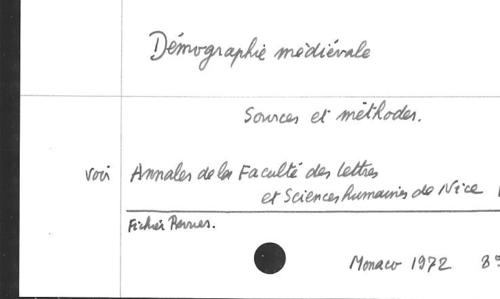 Démographie médiévale
Sources et méthodes.
voir Annales de la Faculté des lettres
et Sciences humaines de Nice
Fichier Revues.
Monaco 1972 8°